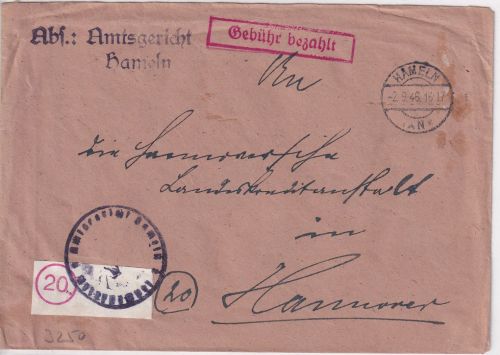 Abs.: Amtsgericht
Hameln
Gebühr bezahlt
HAMELN
-2.9.46.16-17
An
die Hannoversche
Landeskreditanstalt
in
Hannover
Amtsgericht Hameln
20
20
3250